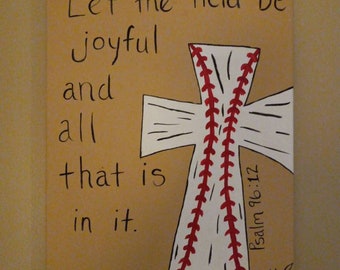 Let the field be
joyful
and
all
that is
in it.
Psalm 96:12